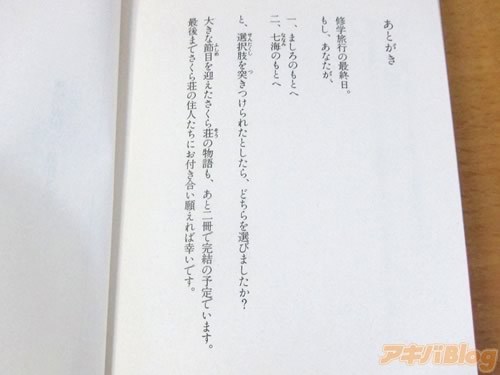 あとがき
修学旅行の最終日。
もし、あなたが、
一、ましろのもとへ
二、七海のもとへ
と、選択肢を突きつけられたとしたら、どちらを選びましたか?
大きな節目を迎えたさくら荘の物語も、あと二冊で完結の予定でいます。
最後までさくら荘の住人たちにお付き合い願えれば幸いです。
アキバBlog